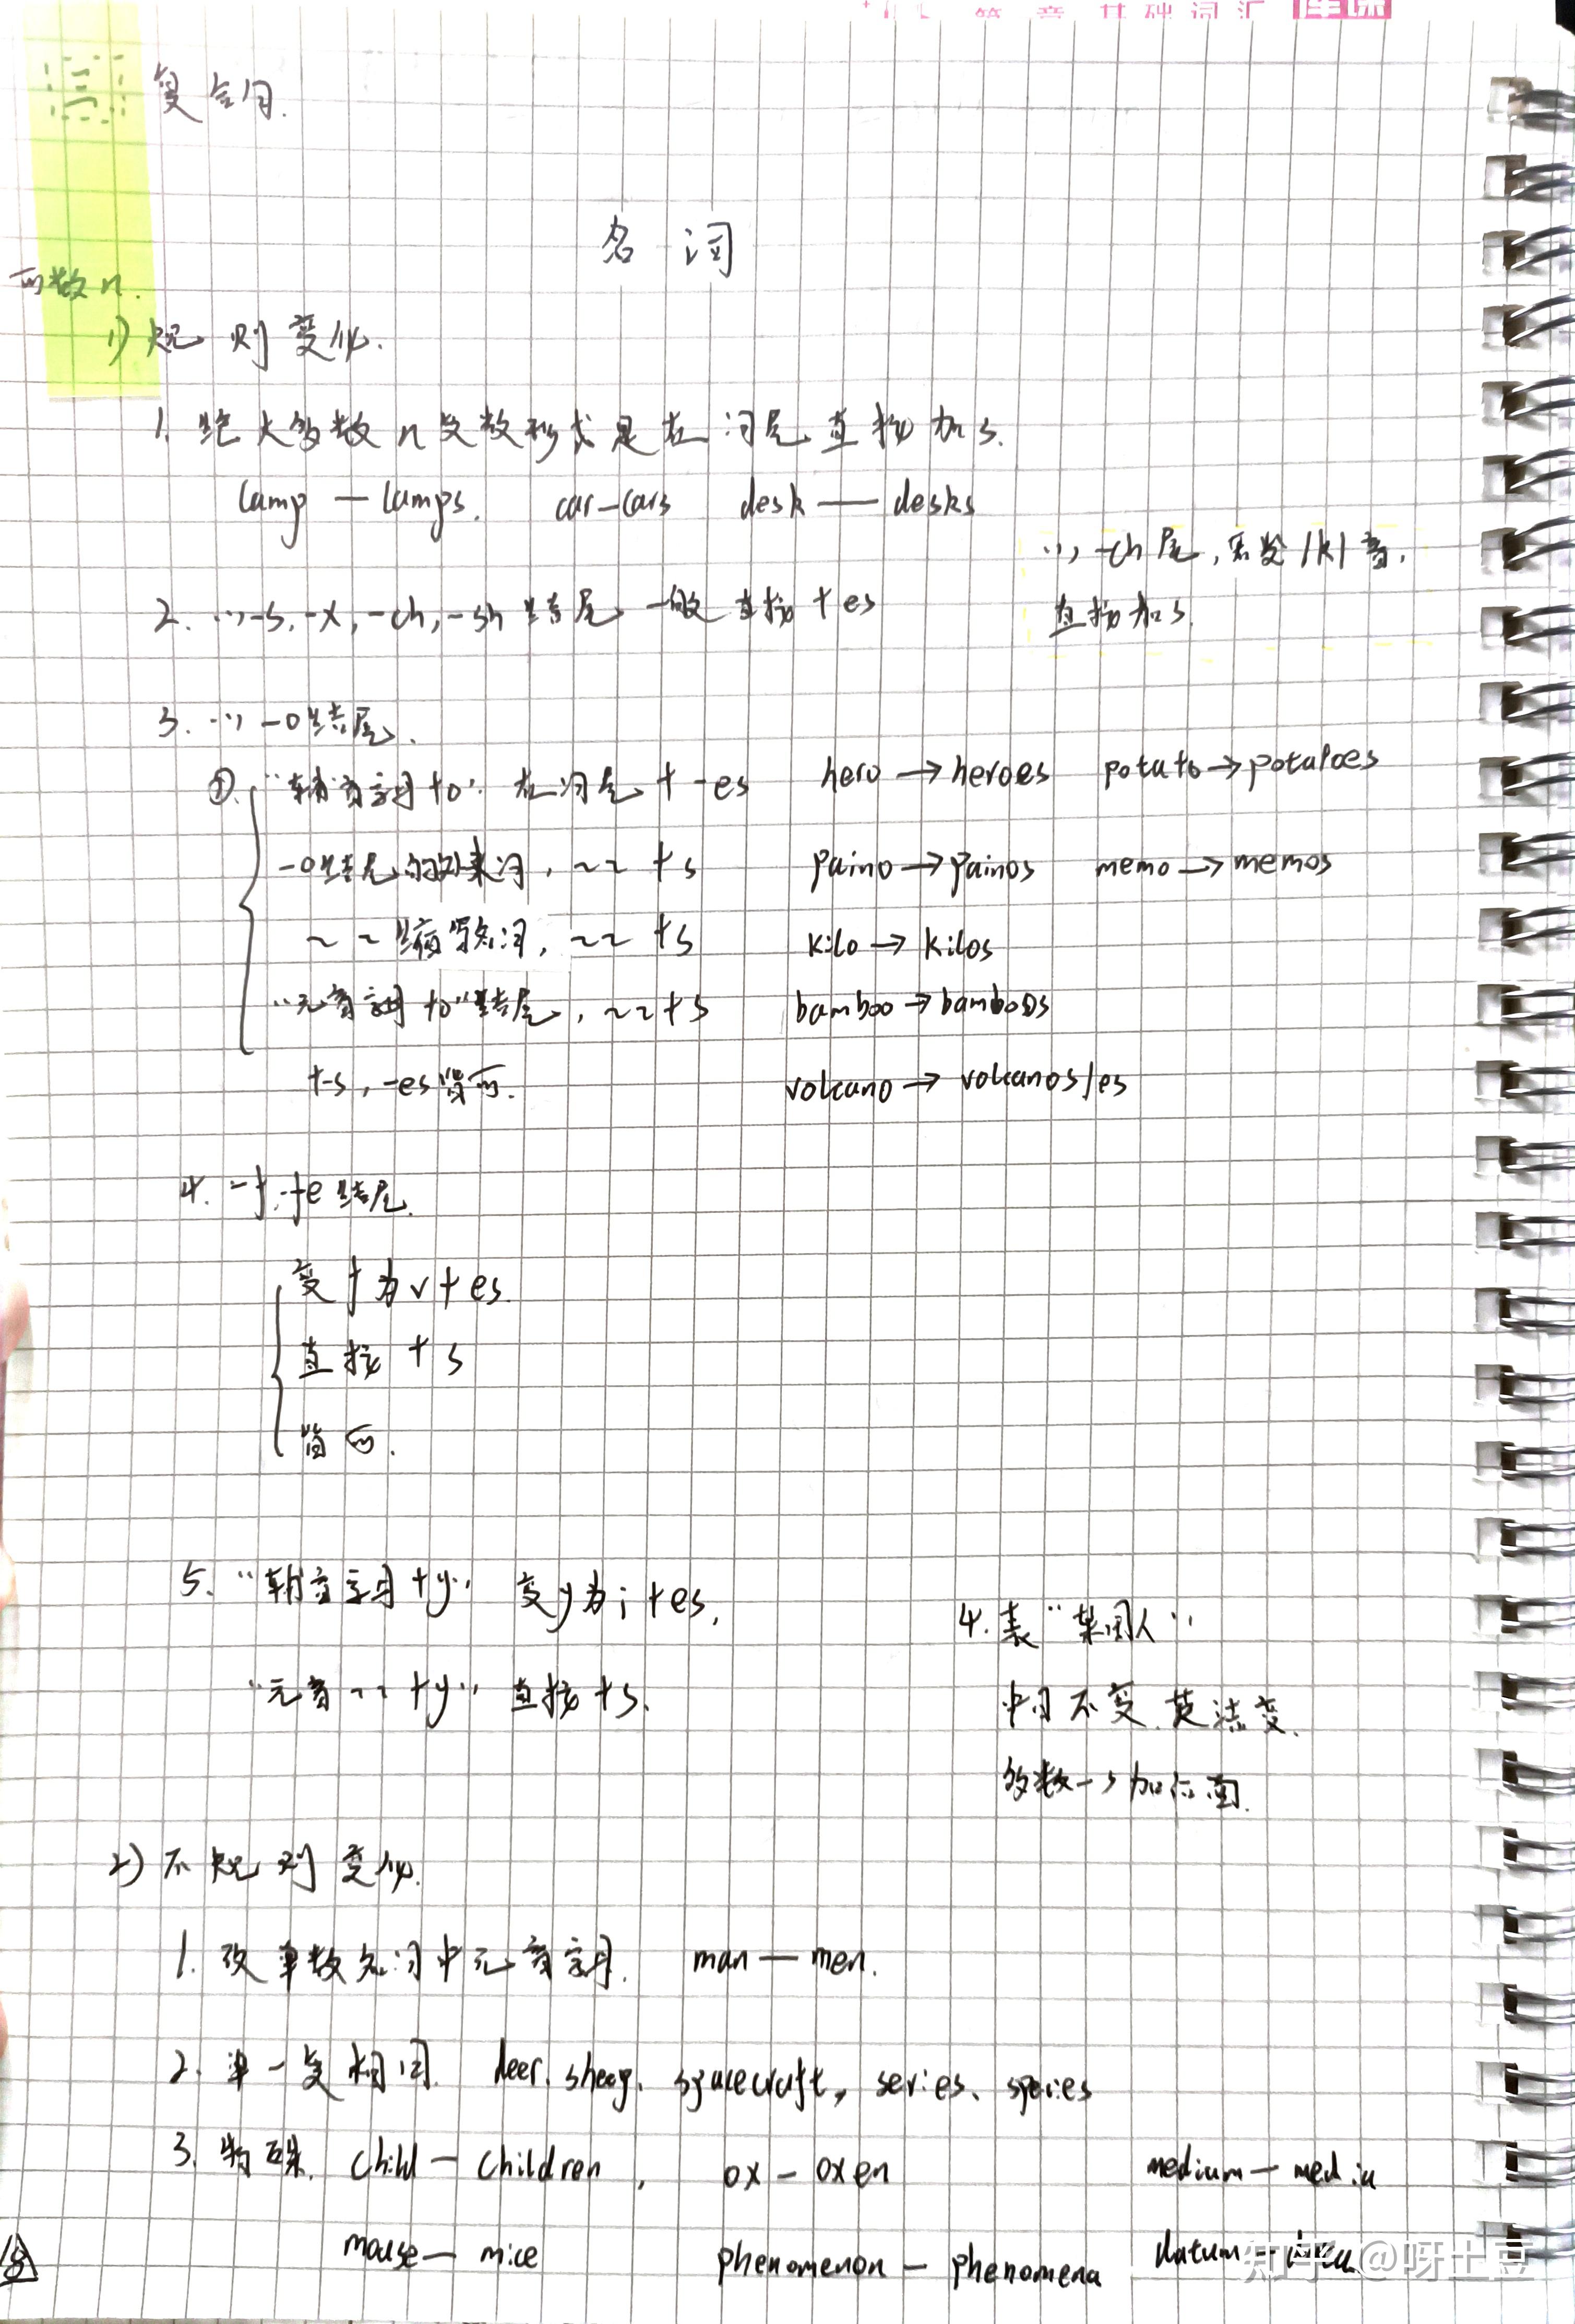 第 章 基础词汇
三 复合词.
名 词
可数n.
1) 规 则 变化.
1. 绝大多数n复数形式是在词尾直接加s.
lamp — lamps. car—cars desk — desks
∵ -ch尾,若发/k/音,
直接加s.
2. ∵ -s, -x, -ch, -sh 结尾 一般直接 + es
3. ∵ -o结尾.
①. "辅音字母+o" 在词尾 + -es hero → heroes potato → potatoes
-o结尾的外来词, ~~ +s paino → painos memo → memos
~ ~ 缩写名词, ~~ +s kilo → kilos
"元音字母+o"结尾, ~~ +s bamboo → bamboos
+-s, -es皆可. volcano → volcanos/es
4. -f, -fe结尾.
变f为v + es.
直接 + s
皆可.
5. "辅音字母+y" 变y为i + es,
"元音 ~~ +y" 直接+s.
4. 表"某国人"
中日不变.英法变.
多数-s加后面.
2) 不规则变化.
1. 改单数名词中元音字母. man — men.
2. 单一复相同. deer. sheep. spacecraft, series、species
3. 特殊. child — children, ox — oxen medium — media
mouse — mice phenomenon — phenomena datum — data
知乎 @呀土豆